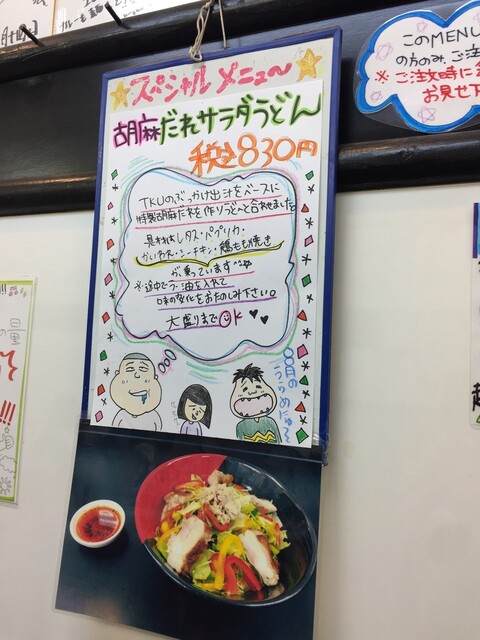 スペシャルメニュー
胡麻だれサラダうどん
税込830円
TKUのぶっかけ出汁をベースに
特製胡麻だれを作りうどんと合わせました
具材はレタス・パプリカ・
かいわれ・シーチキン・鶏もも焼き
が、乗っています^^
※途中でラー油を入れて
味の変化をおたのしみ下さい。
大盛りまでOK
このMENU
の方のみ、ご注
※ご注文時に
お見せ下